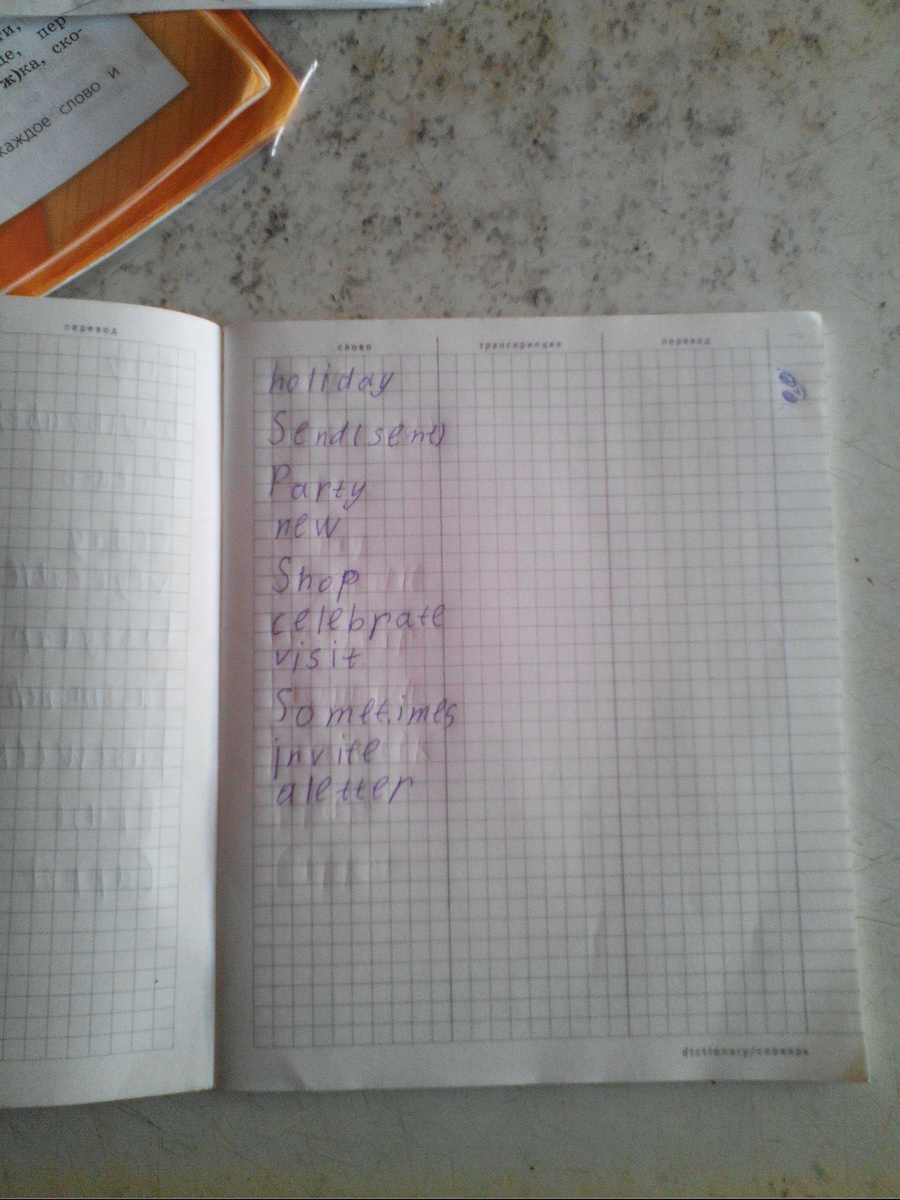 ти,
ше, пер
ж)ка, ско-
каждое слово и
перевод
слово транскрипция перевод
holiday
Send(sent)
Party
new
Shop
celebrate
visit
Sometimes
invite
a letter
dictionary/словарь